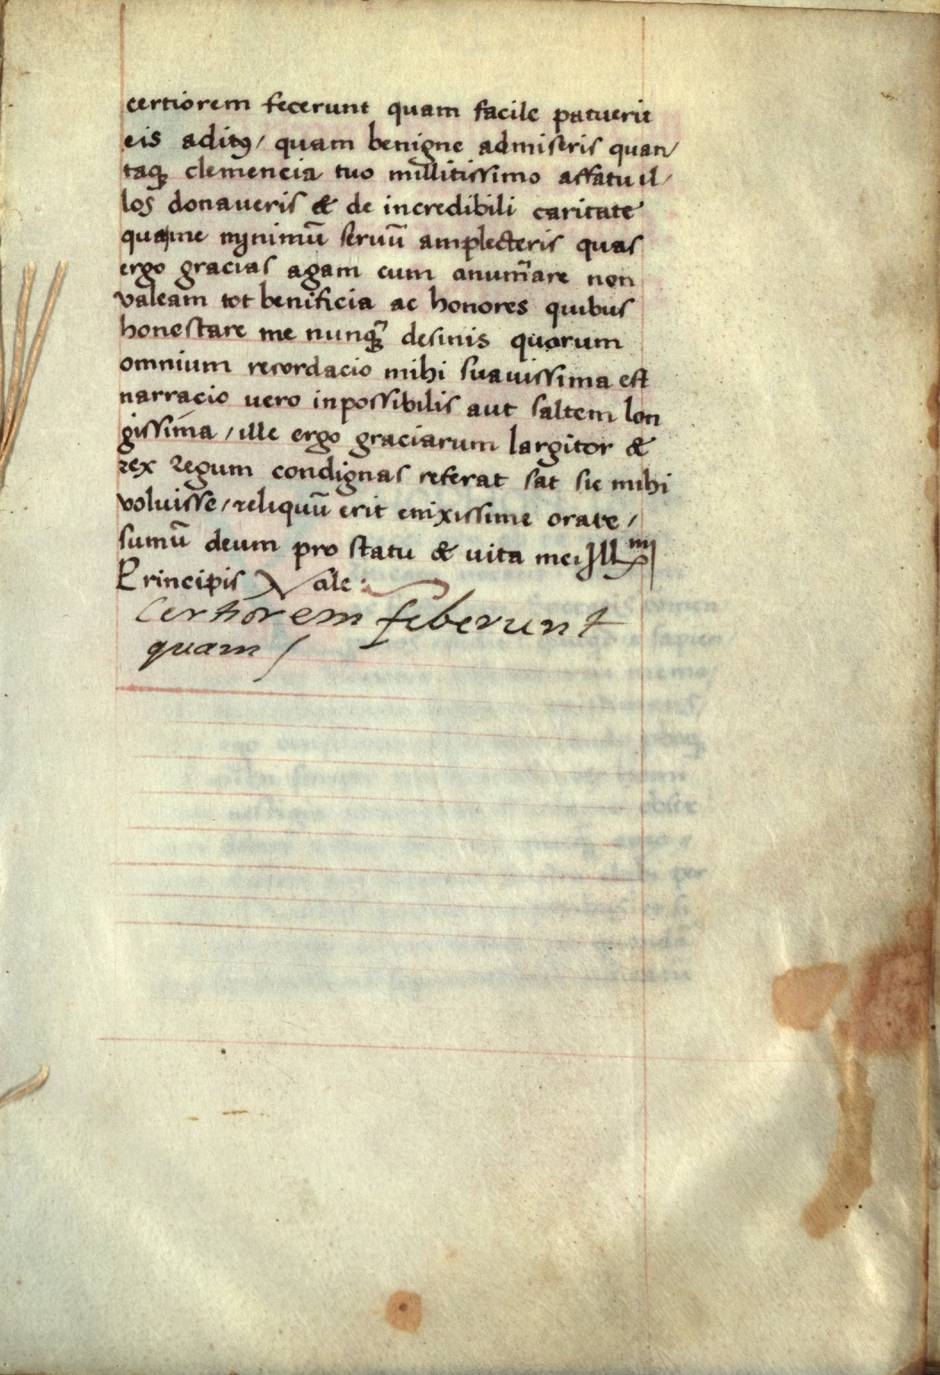 certiorem fecerunt quam facile patuerit
eis aditꝰ/ quam benigne admiseris quan/
taqꝫ clemencia tuo millitissimo affatu il/
los donaveris & de incredibili caritate
qua me mynimū servū amplecteris quas
ergo gracias agam cum anum̄are non
valeam tot benificia ac honores quibus
honestare me nunqꝫ desinis quorum
omnium recordacio mihi suavissima est
narracio vero inpossibilis aut saltem lon
gissima / ille ergo graciarum largitor &
rex regum condignas referat sat sic mihi
voluisse / reliquū erit enixissime orare /
sumū deum pro statu & vita mei Illᵐⁱ
Principis Vale :
certiorem feberunt
quam /